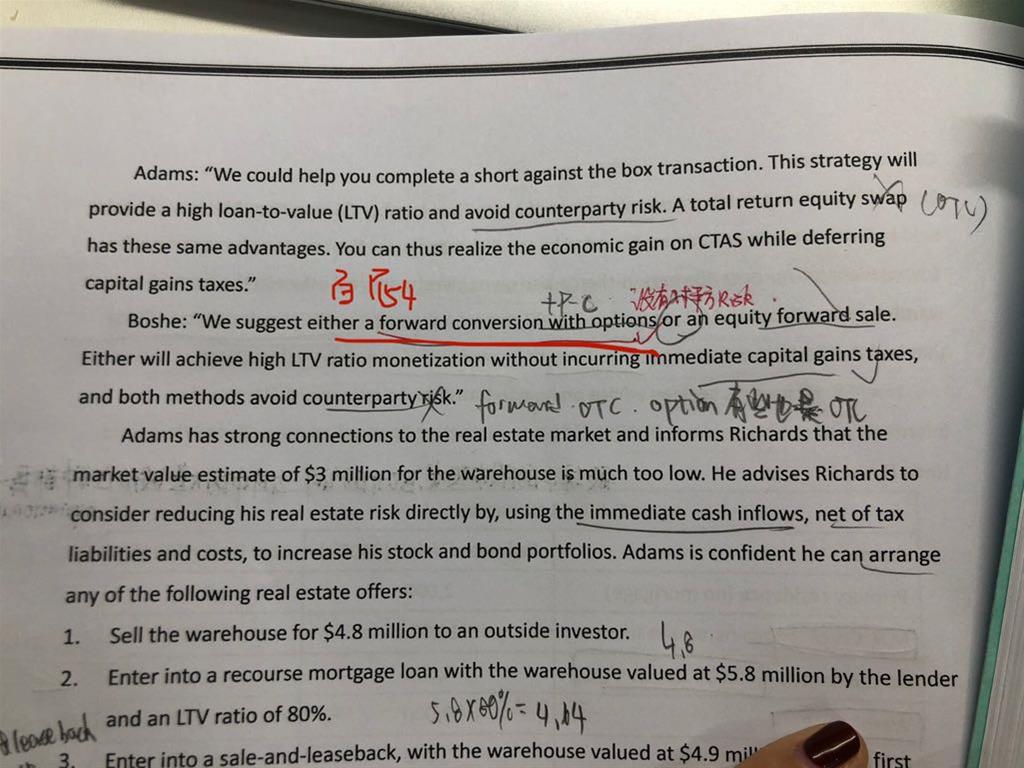 Adams: “We could help you complete a short against the box transaction. This strategy will
provide a high loan-to-value (LTV) ratio and avoid counterparty risk. A total return equity swap (OTC)
has these same advantages. You can thus realize the economic gain on CTAS while deferring
capital gains taxes.”
154
+P-C 没有对手方Risk
Boshe: “We suggest either a forward conversion with options or an equity forward sale.
Either will achieve high LTV ratio monetization without incurring immediate capital gains taxes,
and both methods avoid counterparty risk.” forward OTC. option 有些也是 OTC
Adams has strong connections to the real estate market and informs Richards that the
market value estimate of $3 million for the warehouse is much too low. He advises Richards to
consider reducing his real estate risk directly by, using the immediate cash inflows, net of tax
liabilities and costs, to increase his stock and bond portfolios. Adams is confident he can arrange
any of the following real estate offers:
1. Sell the warehouse for $4.8 million to an outside investor. 4.8
2. Enter into a recourse mortgage loan with the warehouse valued at $5.8 million by the lender
and an LTV ratio of 80%. 5.8×80%=4.64
lease back
3. Enter into a sale-and-leaseback, with the warehouse valued at $4.9 first